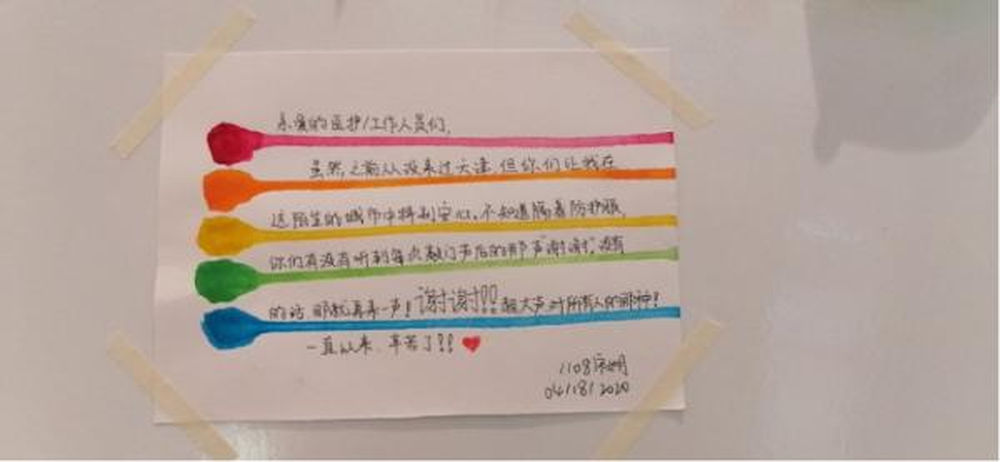 亲爱的医护/工作人员们,
虽然之前从没来过天津,但你们让我在
这陌生的城市中得到安心。不知道隔着防护服,
你们有没有听到每次敲门声后的那声“谢谢”,没有
的话,那就再来一声!谢谢!!超大声,对所有人的那种!
一直以来,辛苦了!! ❤
1108
04/18/2020